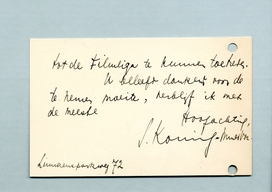 tot de Filmliga te kunnen toetreden.
U beleefd dankend voor de
te nemen moeite, verblijf ik met
de meeste
Hoogachting,
S. Koning
72